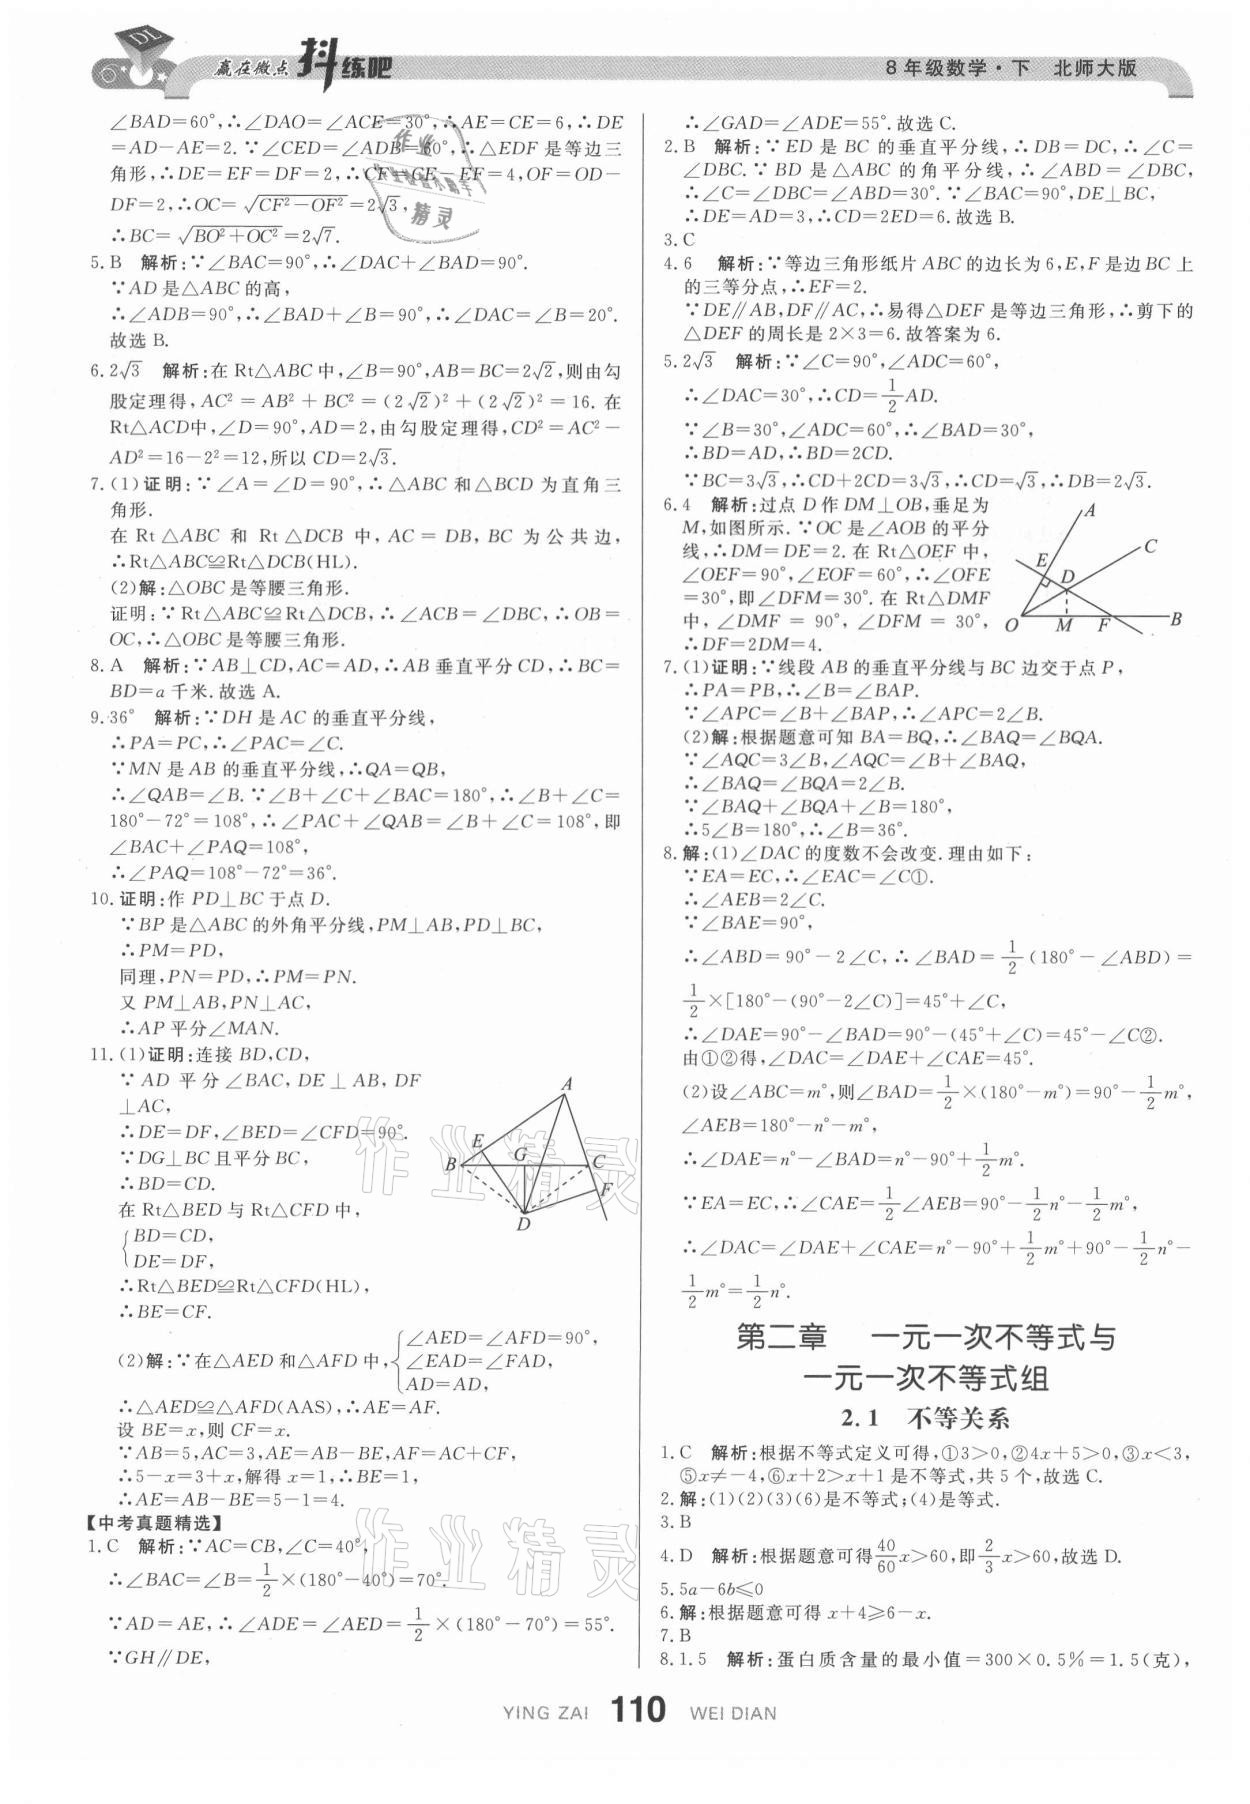 DL
赢在微点 抖练吧
8年级数学·下 北师大版
∠BAD=60°,∴∠DAO=∠ACE=30°,∴AE=CE=6,∴DE
=AD-AE=2.∵∠CED=∠ADB=60°,∴△EDF是等边三
角形,∴DE=EF=DF=2,∴CF=CE-EF=4,OF=OD-
DF=2,∴OC=√(CF²-OF²)=2√3,
∴BC=√(BO²+OC²)=2√7.
5.B 解析:∵∠BAC=90°,∴∠DAC+∠BAD=90°.
∵AD是△ABC的高,
∴∠ADB=90°,∴∠BAD+∠B=90°,∴∠DAC=∠B=20°.
故选B.
6.2√3 解析:在Rt△ABC中,∠B=90°,AB=BC=2√2,则由勾
股定理得,AC²=AB²+BC²=(2√2)²+(2√2)²=16.在
Rt△ACD中,∠D=90°,AD=2,由勾股定理得,CD²=AC²-
AD²=16-2²=12,所以CD=2√3.
7.(1)证明:∵∠A=∠D=90°,∴△ABC和△BCD为直角三
角形.
在Rt△ABC和Rt△DCB中,AC=DB,BC为公共边,
∴Rt△ABC≌Rt△DCB(HL).
(2)解:△OBC是等腰三角形.
证明:∵Rt△ABC≌Rt△DCB,∴∠ACB=∠DBC,∴OB=
OC,∴△OBC是等腰三角形.
8.A 解析:∵AB⊥CD,AC=AD,∴AB垂直平分CD,∴BC=
BD=a千米.故选A.
9.36° 解析:∵DH是AC的垂直平分线,
∴PA=PC,∴∠PAC=∠C.
∵MN是AB的垂直平分线,∴QA=QB,
∴∠QAB=∠B.∵∠B+∠C+∠BAC=180°,∴∠B+∠C=
180°-72°=108°,∴∠PAC+∠QAB=∠B+∠C=108°,即
∠BAC+∠PAQ=108°,
∴∠PAQ=108°-72°=36°.
10.证明:作PD⊥BC于点D.
∵BP是△ABC的外角平分线,PM⊥AB,PD⊥BC,
∴PM=PD,
同理,PN=PD,∴PM=PN.
又PM⊥AB,PN⊥AC,
∴AP平分∠MAN.
11.(1)证明:连接BD,CD,
∵AD平分∠BAC,DE⊥AB,DF
⊥AC,
∴DE=DF,∠BED=∠CFD=90°.
∵DG⊥BC且平分BC,
∴BD=CD.
在Rt△BED与Rt△CFD中,
{BD=CD,
DE=DF,
∴Rt△BED≌Rt△CFD(HL),
∴BE=CF.
A
E
G
B
C
F
D
(2)解:∵在△AED和△AFD中,{∠AED=∠AFD=90°,
∠EAD=∠FAD,
AD=AD,
∴△AED≌△AFD(AAS),∴AE=AF.
设BE=x,则CF=x.
∵AB=5,AC=3,AE=AB-BE,AF=AC+CF,
∴5-x=3+x,解得x=1,∴BE=1,
∴AE=AB-BE=5-1=4.
【中考真题精选】
1.C 解析:∵AC=CB,∠C=40°,
∴∠BAC=∠B=1/2×(180°-40°)=70°.
∵AD=AE,∴∠ADE=∠AED=1/2×(180°-70°)=55°.
∵GH∥DE,
∴∠GAD=∠ADE=55°.故选C.
2.B 解析:∵ED是BC的垂直平分线,∴DB=DC,∴∠C=
∠DBC.∵BD是△ABC的角平分线,∴∠ABD=∠DBC,
∴∠C=∠DBC=∠ABD=30°.∵∠BAC=90°,DE⊥BC,
∴DE=AD=3,∴CD=2ED=6.故选B.
3.C
4.6 解析:∵等边三角形纸片ABC的边长为6,E,F是边BC上
的三等分点,∴EF=2.
∵DE∥AB,DF∥AC,∴易得△DEF是等边三角形,∴剪下的
△DEF的周长是2×3=6.故答案为6.
5.2√3 解析:∵∠C=90°,∠ADC=60°,
∴∠DAC=30°,∴CD=1/2AD.
∵∠B=30°,∠ADC=60°,∴∠BAD=30°,
∴BD=AD,∴BD=2CD.
∵BC=3√3,∴CD+2CD=3√3,∴CD=√3,∴DB=2√3.
6.4 解析:过点D作DM⊥OB,垂足为
M,如图所示.∵OC是∠AOB的平分
线,∴DM=DE=2.在Rt△OEF中,
∠OEF=90°,∠EOF=60°,∴∠OFE
=30°,即∠DFM=30°.在Rt△DMF
中,∠DMF=90°,∠DFM=30°,
∴DF=2DM=4.
A
C
E
D
O
M
F
B
7.(1)证明:∵线段AB的垂直平分线与BC边交于点P,
∴PA=PB,∴∠B=∠BAP.
∵∠APC=∠B+∠BAP,∴∠APC=2∠B.
(2)解:根据题意可知BA=BQ,∴∠BAQ=∠BQA.
∵∠AQC=3∠B,∠AQC=∠B+∠BAQ,
∴∠BAQ=∠BQA=2∠B.
∵∠BAQ+∠BQA+∠B=180°,
∴5∠B=180°,∴∠B=36°.
8.解:(1)∠DAC的度数不会改变.理由如下:
∵EA=EC,∴∠EAC=∠C①.
∴∠AEB=2∠C.
∵∠BAE=90°,
∴∠ABD=90°-2∠C,∴∠BAD=1/2(180°-∠ABD)=
1/2×[180°-(90°-2∠C)]=45°+∠C,
∴∠DAE=90°-∠BAD=90°-(45°+∠C)=45°-∠C②.
由①②得,∠DAC=∠DAE+∠CAE=45°.
(2)设∠ABC=m°,则∠BAD=1/2×(180°-m°)=90°-1/2m°,
∠AEB=180°-n°-m°,
∴∠DAE=n°-∠BAD=n°-90°+1/2m°.
∵EA=EC,∴∠CAE=1/2∠AEB=90°-1/2n°-1/2m°,
∴∠DAC=∠DAE+∠CAE=n°-90°+1/2m°+90°-1/2n°-
1/2m°=1/2n°.
第二章 一元一次不等式与
一元一次不等式组
2.1 不等关系
1.C 解析:根据不等式定义可得,①3>0,②4x+5>0,③x<3,
⑤x≠-4,⑥x+2>x+1是不等式,共5个,故选C.
2.解:(1)(2)(3)(6)是不等式;(4)是等式.
3.B
4.D 解析:根据题意可得40/60x>60,即2/3x>60,故选D.
5.5a-6b≤0
6.解:根据题意可得x+4≥6-x.
7.B
8.1.5 解析:蛋白质含量的最小值=300×0.5%=1.5(克),
作业精灵
作业精灵
YING ZAI 110 WEI DIAN